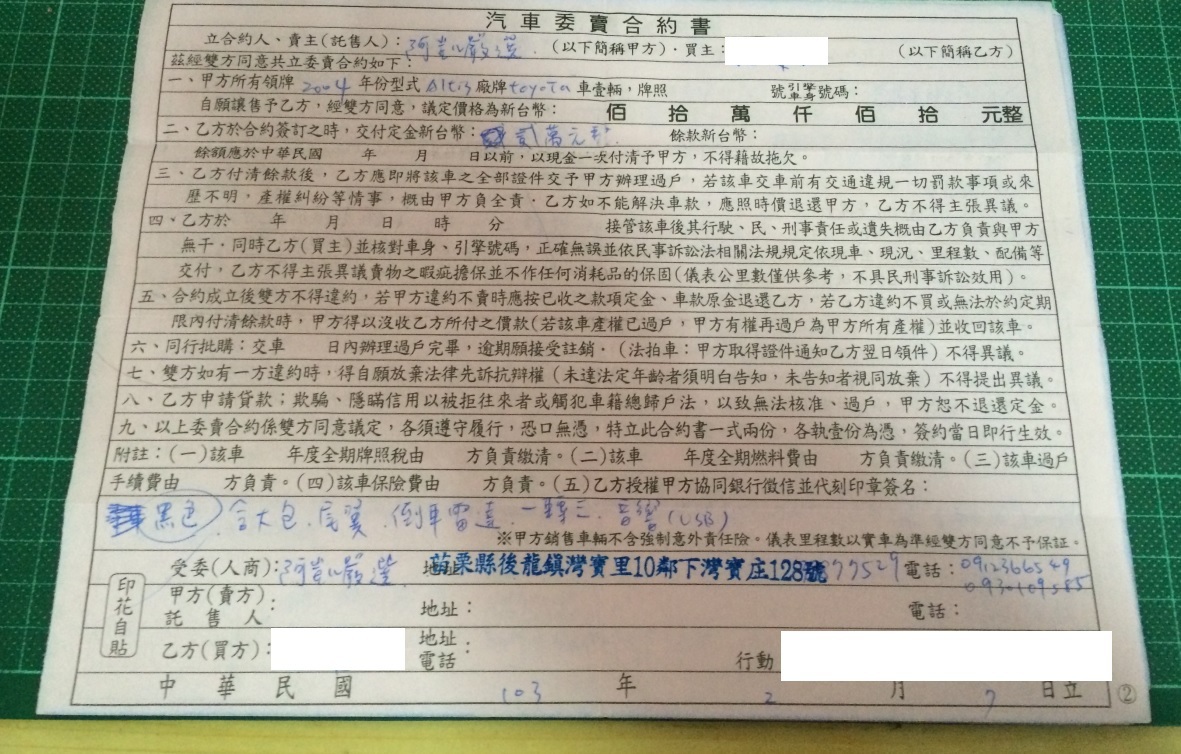 汽車委賣合約書
立合約人、賣主(託售人)：阿凱嚴選 (以下簡稱甲方)．買主： (以下簡稱乙方)
茲經雙方同意共立委賣合約如下：
一、甲方所有領牌 2004 年份型式 Altis 廠牌 toyota 車壹輛，牌照 號引擎車身號碼：
自願讓售予乙方，經雙方同意，議定價格為新台幣： 佰 拾 萬 仟 佰 拾 元整
二、乙方於合約簽訂之時，交付定金新台幣： 貳萬元 餘款新台幣：
餘額應於中華民國 年 月 日以前，以現金一次付清予甲方，不得藉故拖欠。
三、乙方付清餘款後，乙方應即將該車之全部證件交予甲方辦理過戶，若該車交車前有交通違規一切罰款事項或來
歷不明，產權糾紛等情事，概由甲方負全責．乙方如不能解決車款，應照時價退還甲方，乙方不得主張異議。
四、乙方於 年 月 日 時 分 接管該車後其行駛、民、刑事責任或遺失概由乙方負責與甲方
無干．同時乙方(買主)並核對車身、引擎號碼，正確無誤並依民事訴訟法相關法規規定依現車、現況、里程數、配備等
交付，乙方不得主張異議賣物之暇疵擔保並不作任何消耗品的保固(儀表公里數僅供參考，不具民刑事訴訟效用)。
五、合約成立後雙方不得違約，若甲方違約不賣時應按已收之款項定金、車款原金退還乙方，若乙方違約不買或無法於約定期
限內付清餘款時，甲方得以沒收乙方所付之價款(若該車產權已過戶，甲方有權再過戶為甲方所有產權)並收回該車。
六、同行批購：交車 日內辦理過戶完畢，逾期願接受註銷．(法拍車：甲方取得證件通知乙方翌日領件)不得異議。
七、雙方如有一方違約時，得自願放棄法律先訴抗辯權(未達法定年齡者須明白告知，未告知者視同放棄)不得提出異議。
八、乙方申請貸款；欺騙、隱瞞信用以被拒往來者或觸犯車籍總歸戶法，以致無法核准、過戶，甲方恕不退還定金。
九、以上委賣合約係雙方同意議定，各須遵守履行，恐口無憑，特立此合約書一式兩份，各執壹份為憑，簽約當日即行生效。
附註：(一)該車 年度全期牌照稅由 方負責繳清。(二)該車 年度全期燃料費由 方負責繳清。(三)該車過戶
手續費由 方負責。(四)該車保險費由 方負責。(五)乙方授權甲方協同銀行徵信並代刻印章簽名：
黑色 含大包．尾翼．倒車雷達．一轉三．音響(USB)
※甲方銷售車輛不含強制意外責任險。儀表里程數以實車為準經雙方同意不予保証。
受委(人商)：阿凱嚴選 地址 苗栗縣後龍鎮灣寶里10鄰下灣寶庄128號 電話：0912366549
印花自貼
甲方(賣方)
託售人： 地址： 電話：
乙方(買方)： 地址： 電話： 行動
中華民國 103 年 2 月 7 日立 ②